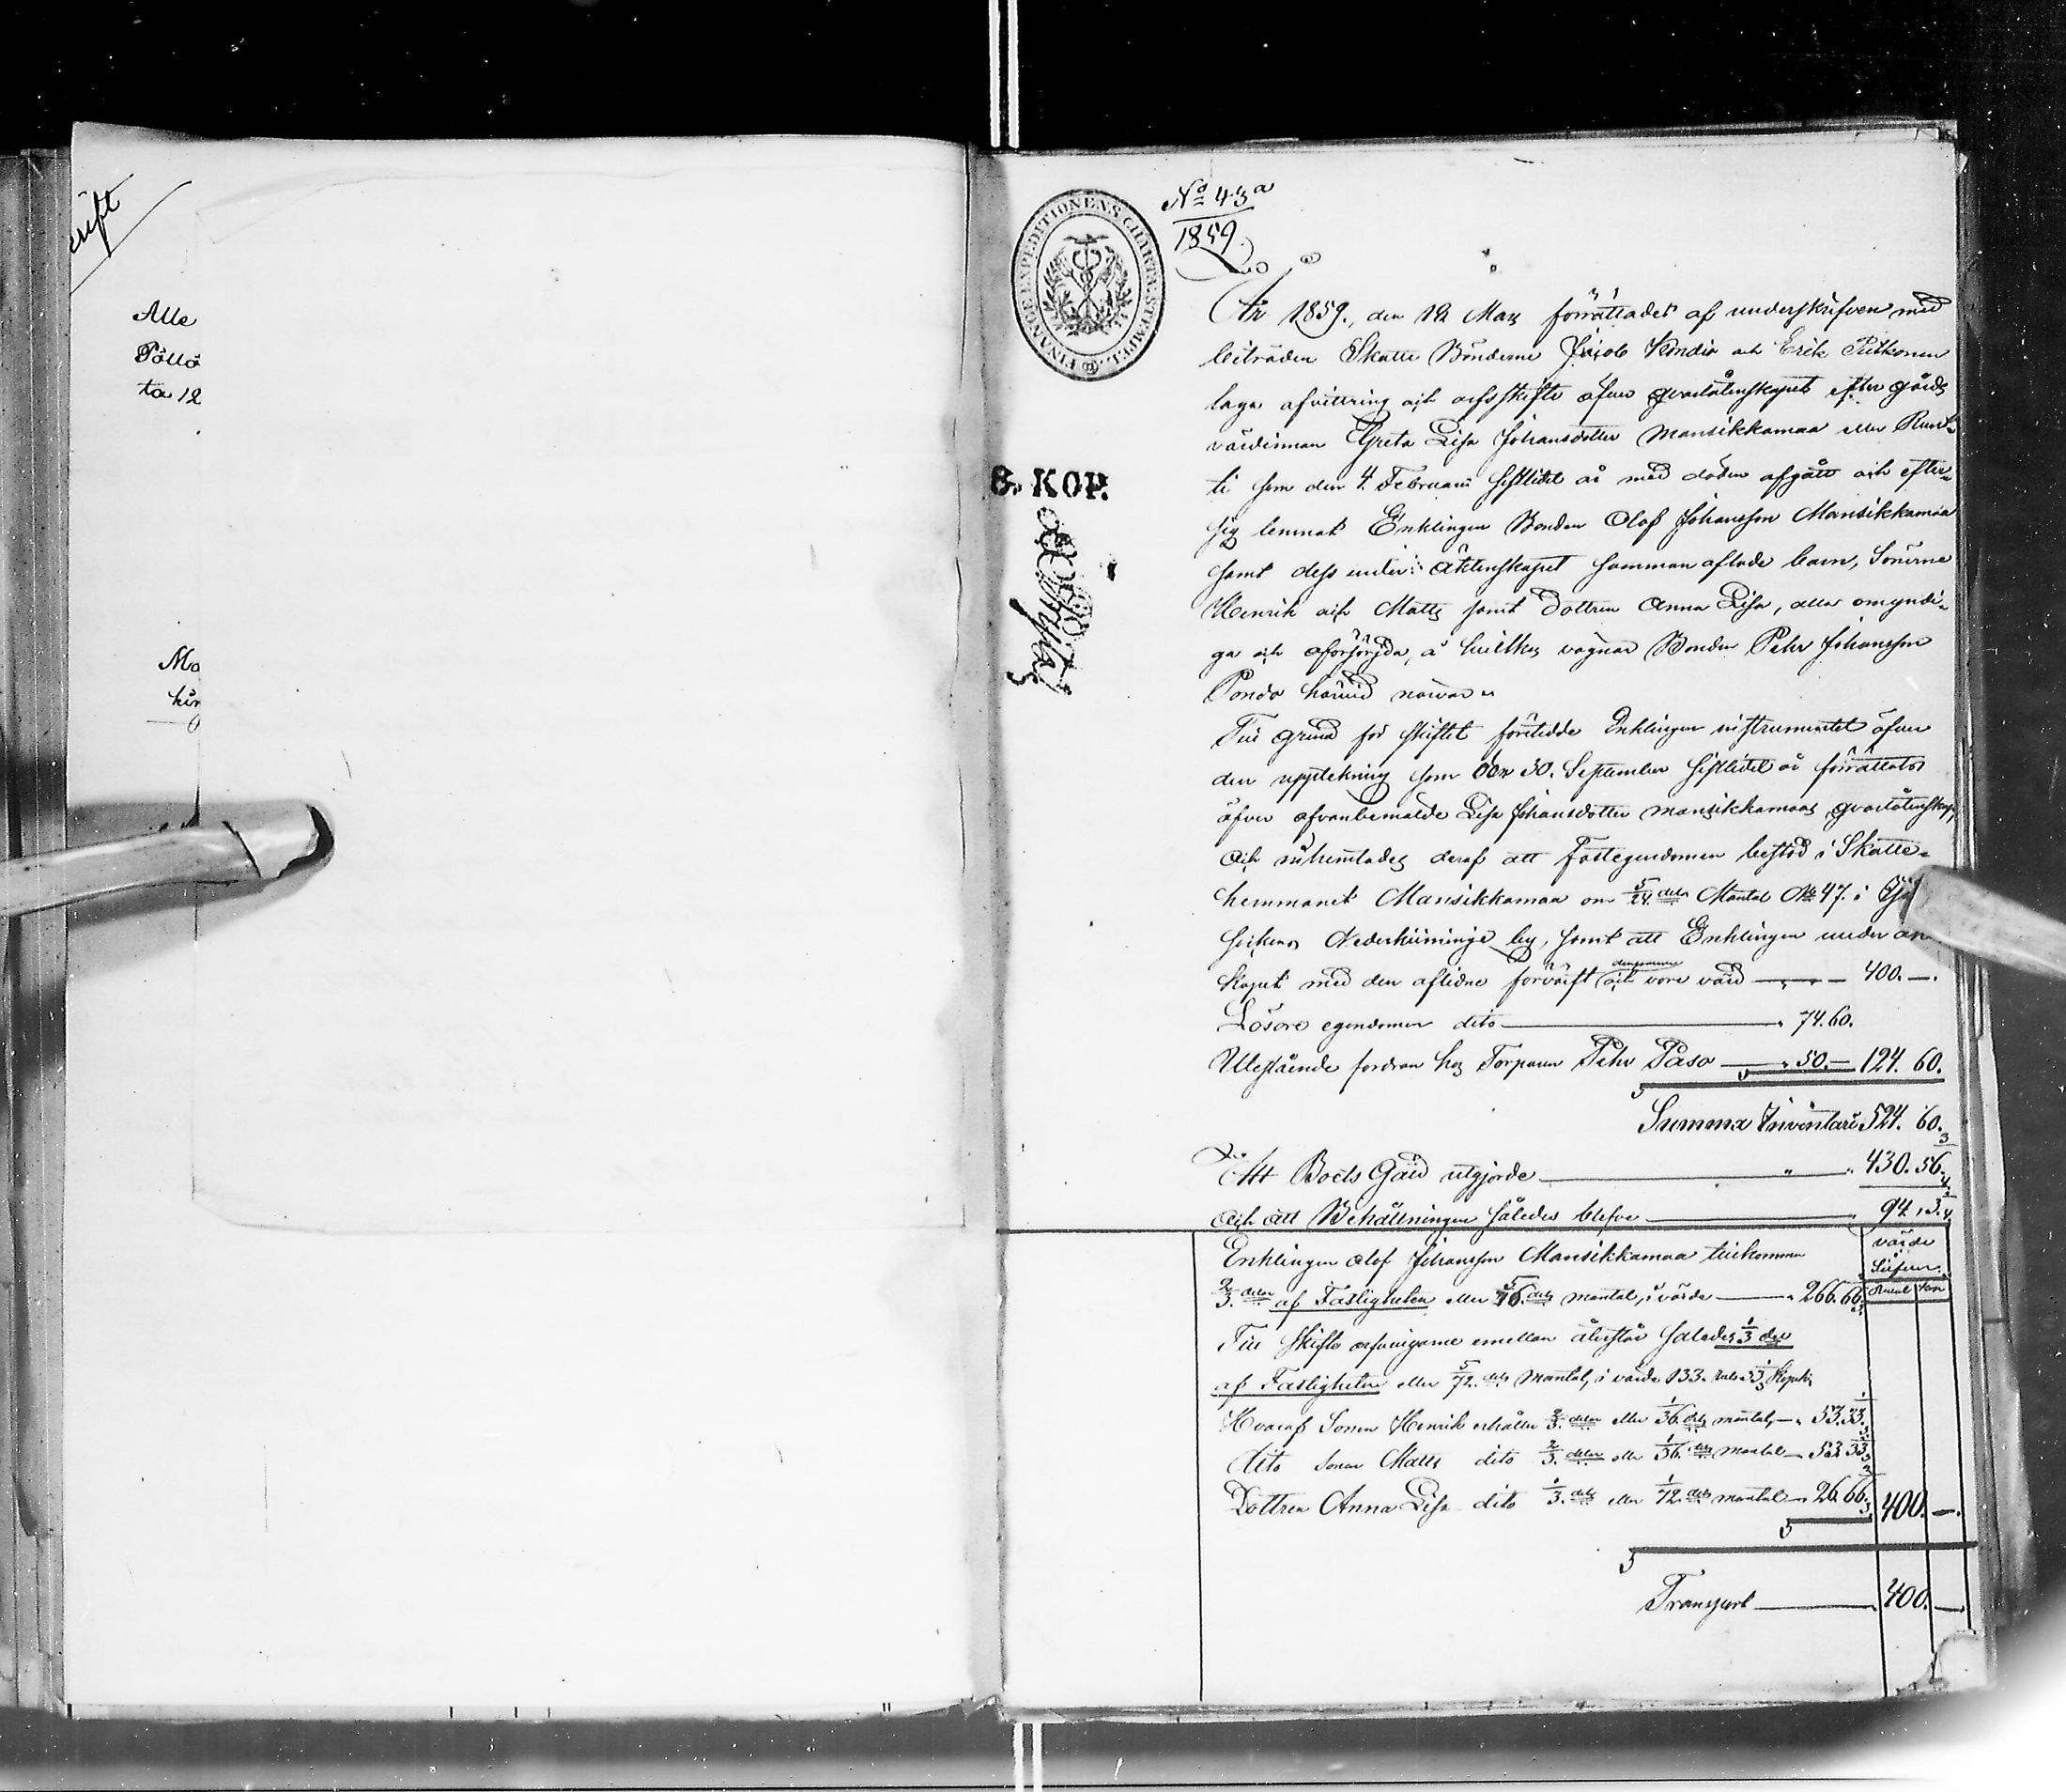 crift
Alle
Pöllä
ta 12
Ma
hir
No 43a
1859.
FINANCE EXPEDITIONENS CHARTÆ STEMPEL
8. KOP.
År 1859., den 12 Mars förrättades af underskrifven med
biträden Skatte Bönderne Jacob Kondio och Erik Pitkonen
laga afvittring och arfsskifte öfver qvarlåtenskapet efter gårds
värdinnan Greta Lisa Johansdotter Mansikkamaa eller Runt-
ti som den 4. Februarii sistlidet år med döden afgått och efter
sig lemnat Enklingen Bonden Olof Johansson Mansikkamaa
samt dess under äktenskapet samman aflade barn, Sönerne
Henrik och Matts samt dottren Anna Lisa, alla omyndi-
ga och oförsörjda, å hvilkas vägnar Bonden Pehr Johansson
Pondo härvid närvar
Till grund för skiftet företedde Enklingen instrumentet öfver
den uppteckning som den 30. September sistlidet år förrättats
öfver ofvanbemälde Lisa Johansdotter Mansikkamaas qvarlåtenskap,
och inhemtades deraf att Fastegendomen bestod i Skatte-
hemmanet Mansikkamaa om 5/24. dels Mantal No 47. i
Sockens Nederkiiminge by, samt att Enklingen under
skapet med den aflidne förvärft densamma och vore värd — 400. —.
Lösöre egendomen dito — 74. 60.
Utestående fordran hos Torparen Pehr Paso — 50. — 124. 60.
Summa Inventarii 524. 60.
Att Boets Gäld utgjorde — 430. 56 3/4
Och att Behållningen således blefve — 94. 3 1/4
Enklingen Olof Johansson Mansikkamaa tillkommer
värde
Silfver.
2/3. delar af Fastigheten eller 5/36. dels mantal, i värde — 266. 66 2/3
Rubel Kop
Till skifte arfvingarne emellan återstår således 1/3 del
af Fastigheten eller 5/72. dels Mantal, i värde 133. rub. 33 1/3 Kopek:
Hvaraf Sonen Henrik erhåller 2/5. delar eller 1/36. dels mantal, — 53. 33 1/3
dito Sonen Matts dito 2/5. delar eller 1/36. dels mantal — 53. 33 1/3
Dottren Anna Lisa dito 1/5. dels eller 1/72. dels mantal — 26. 66 2/3 400. —.
Transport — 400. —